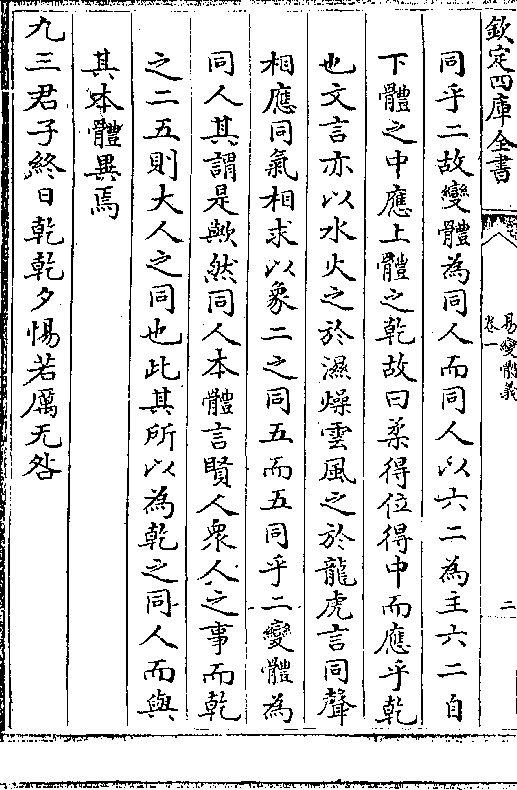 欽定四庫全書
易變體義
卷一
二
同乎二故變體為同人而同人以六二為主六二自
下體之中應上體之乾故曰柔得位得中而應乎乾
也文言亦以水火之於濕燥雲風之於龍虎言同聲
相應同氣相求以象二之同五而五同乎二變體為
同人其謂是歟然同人本體言賢人衆人之事而乾
之二五則大人之同也此其所以為乾之同人而與
其本體異焉
九三君子終日乾乾夕惕若厲无咎